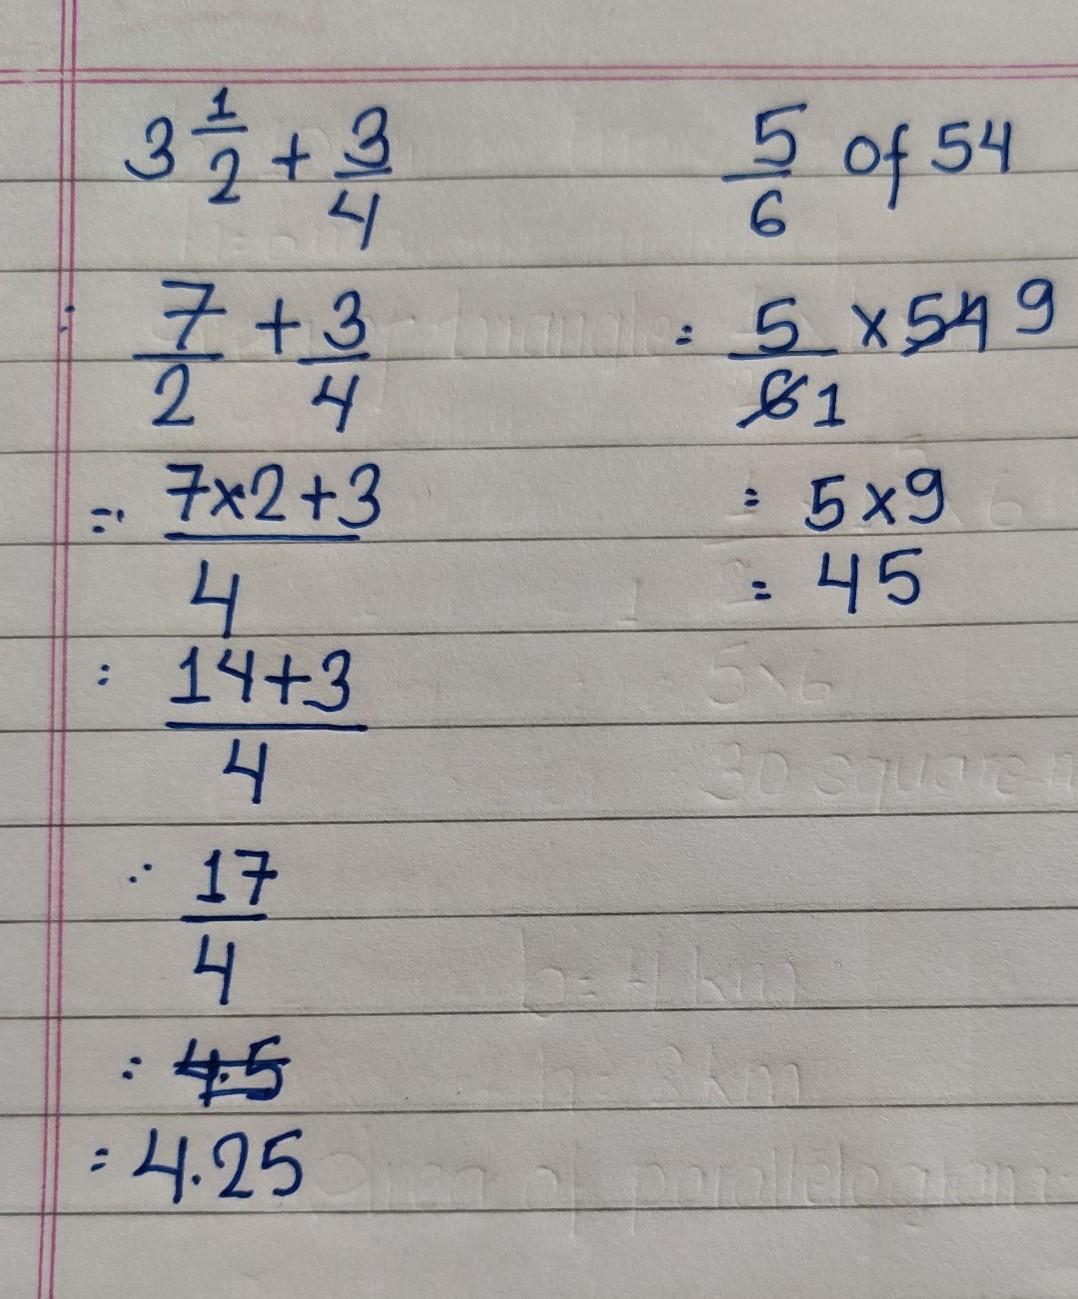 3 1/2 + 3/4
7/2 + 3/4
= 7×2+3/4
= 14+3/4
= 17/4
= 4.5
= 4.25
5/6 of 54
= 5/6 1 × 54 9
= 5×9
= 45